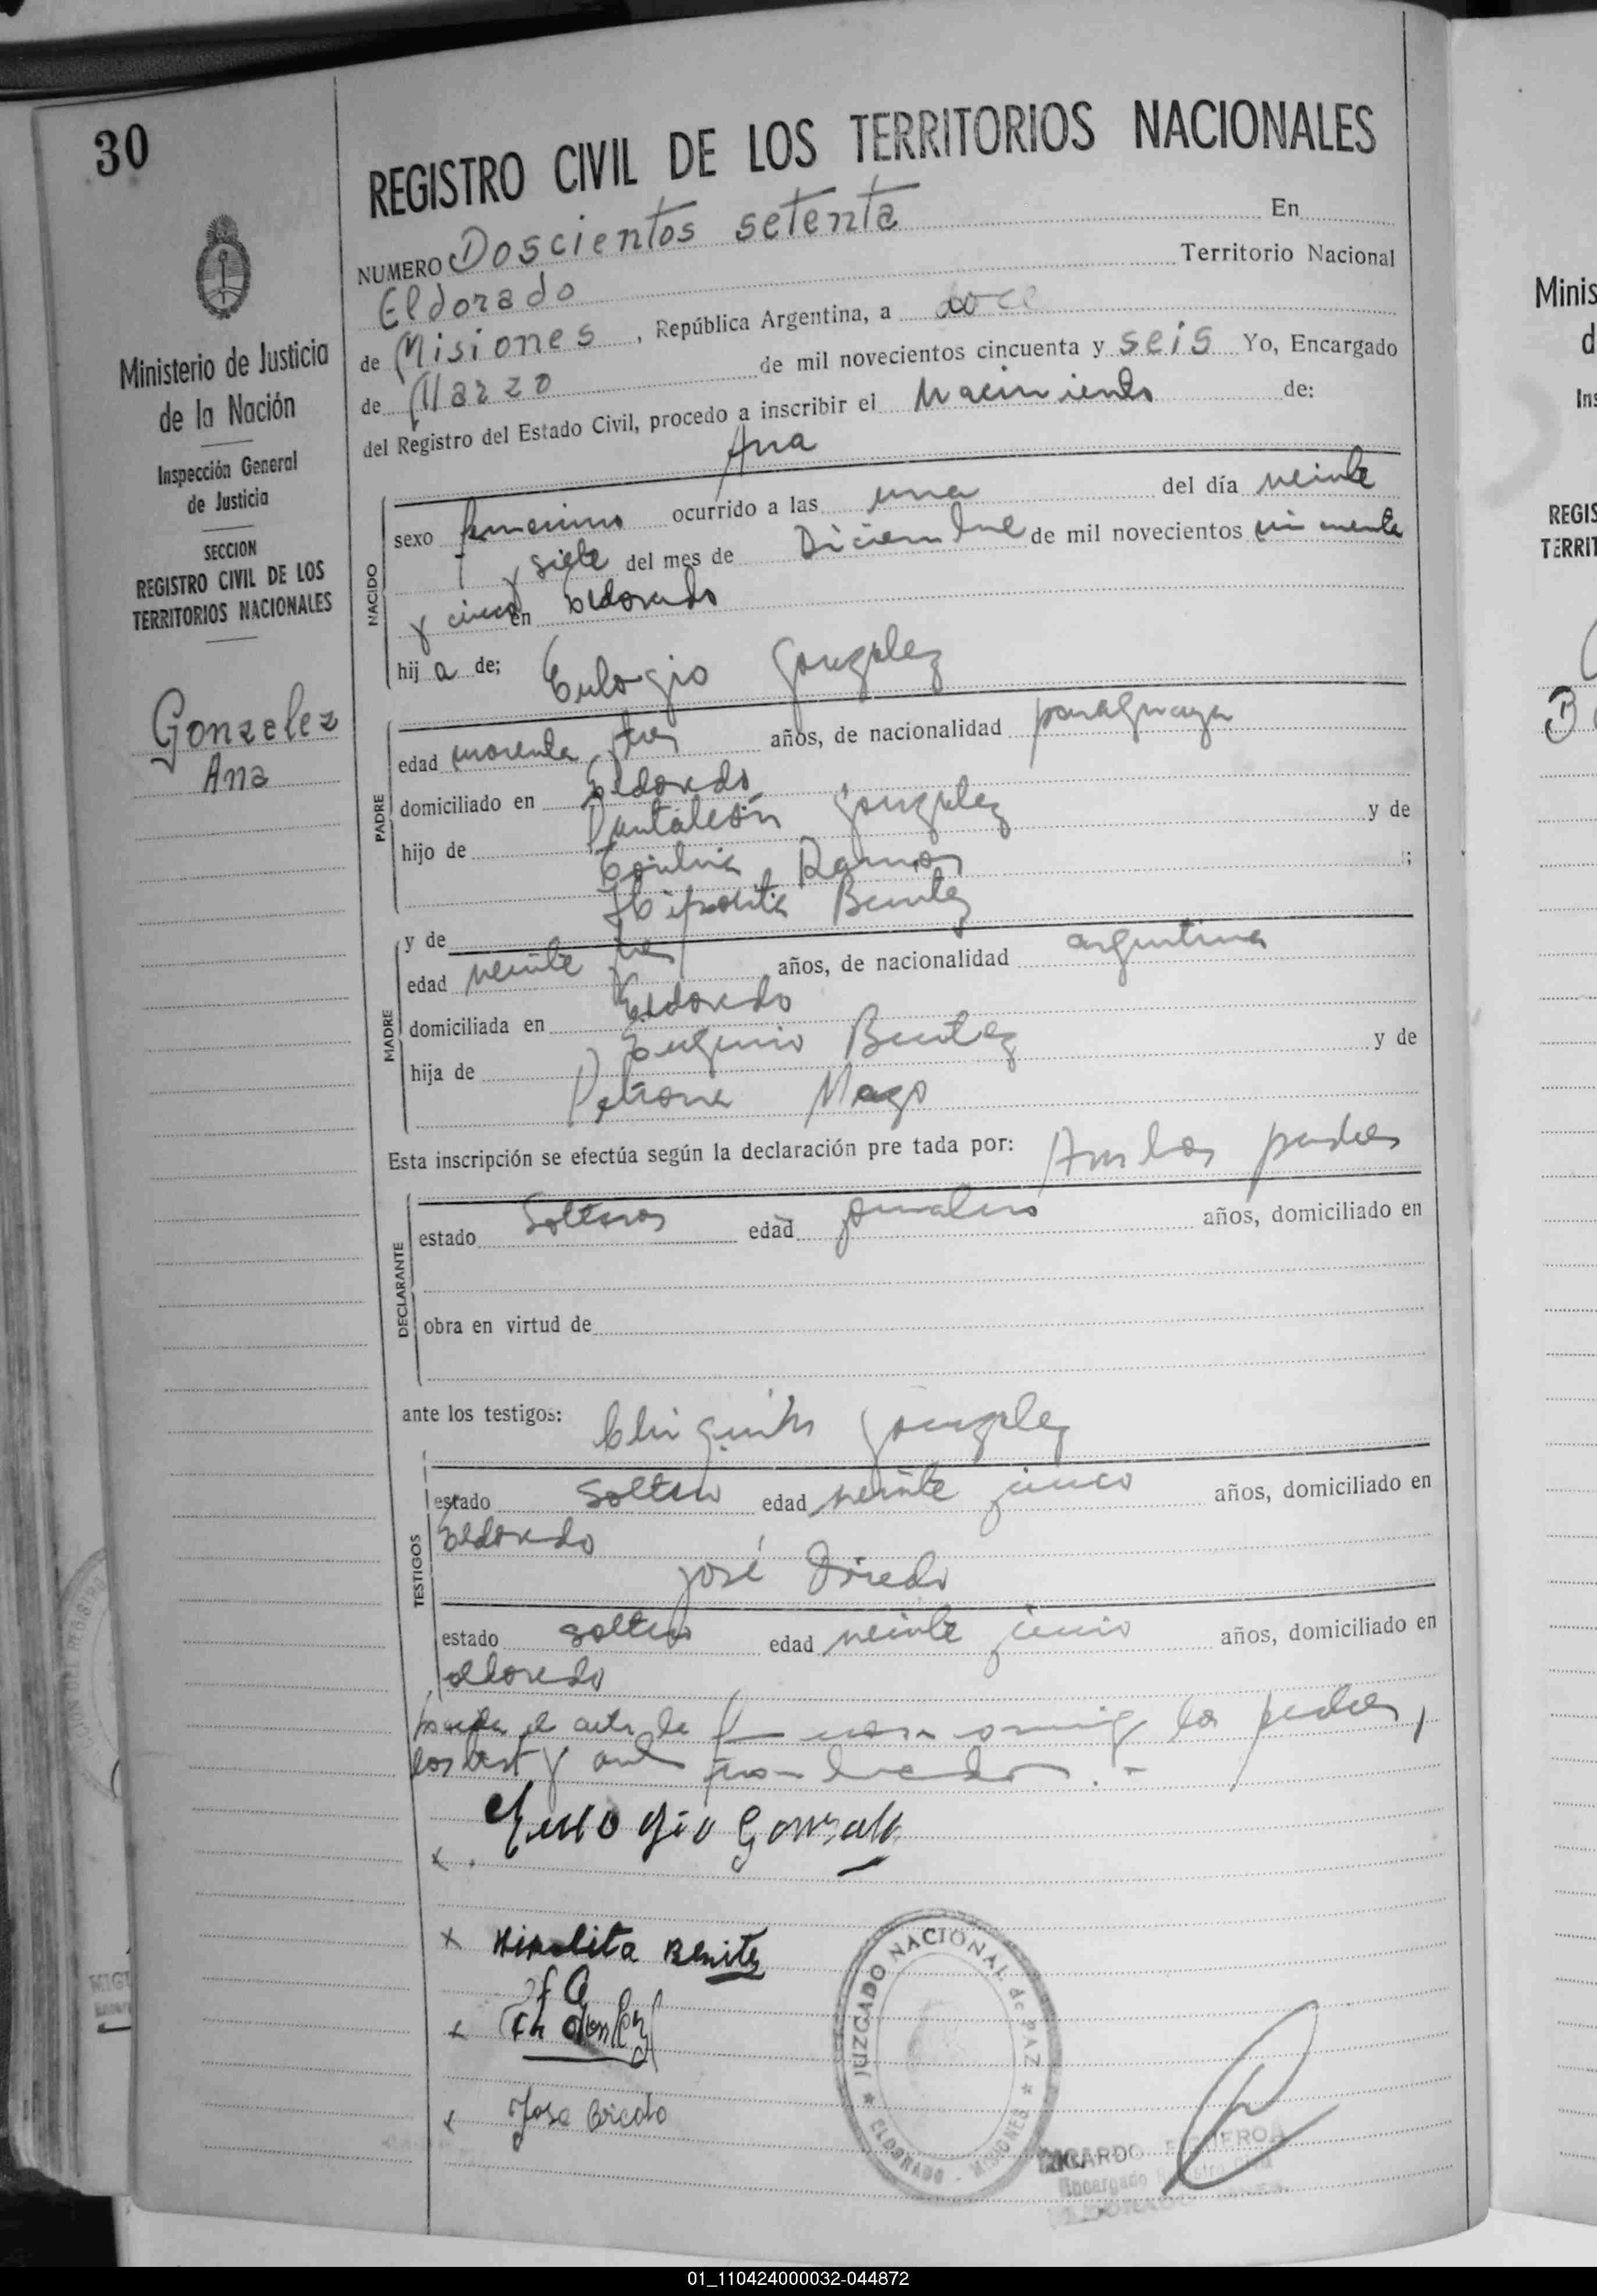 30
REGISTRO CIVIL DE LOS TERRITORIOS NACIONALES
NUMERO Doscientos setenta En
Eldorado Territorio Nacional
de Misiones, República Argentina, a doce
de Marzo de mil novecientos cincuenta y seis Yo, Encargado
del Registro del Estado Civil, procedo a inscribir el Nacimiento de:
Ana
Ministerio de Justicia
de la Nación
Inspección General
de Justicia
SECCION
REGISTRO CIVIL DE LOS
TERRITORIOS NACIONALES
Gonzalez
Ana
NACIDO
sexo femenino ocurrido a las una del día veinte
y siete del mes de Diciembre de mil novecientos cincuenta
y cinco en Eldorado
hija de; Eulogio Gonzalez
PADRE
edad cuarenta tres años, de nacionalidad paraguaya
domiciliado en Eldorado
hijo de Pantaleón Gonzalez y de
Ramos;
y de Hipolita Benitez
MADRE
edad veinte tres años, de nacionalidad argentina
domiciliada en Eldorado
hija de Eugenio Benitez y de
Petrona
Esta inscripción se efectúa según la declaración pre tada por: Ambos padres
DECLARANTE
estado Solteros edad jornalero años, domiciliado en
obra en virtud de
ante los testigos: Chiquito Gonzalez
TESTIGOS
estado Soltero edad veinte cinco años, domiciliado en
Eldorado
José
estado soltero edad veinte cinco años, domiciliado en
eldorado
el acta la los padres,
los test y
Eulogio Gonzalez
x
x Hipolita Benitez
x
x Jose
JUZGADO NACIONAL de PAZ
ELDORADO - MISIONES
RICARDO FIGUEROA
Encargado Registro Civil
Minis
d
Ins
REGIS
TERRIT
B
01_110424000032-044872